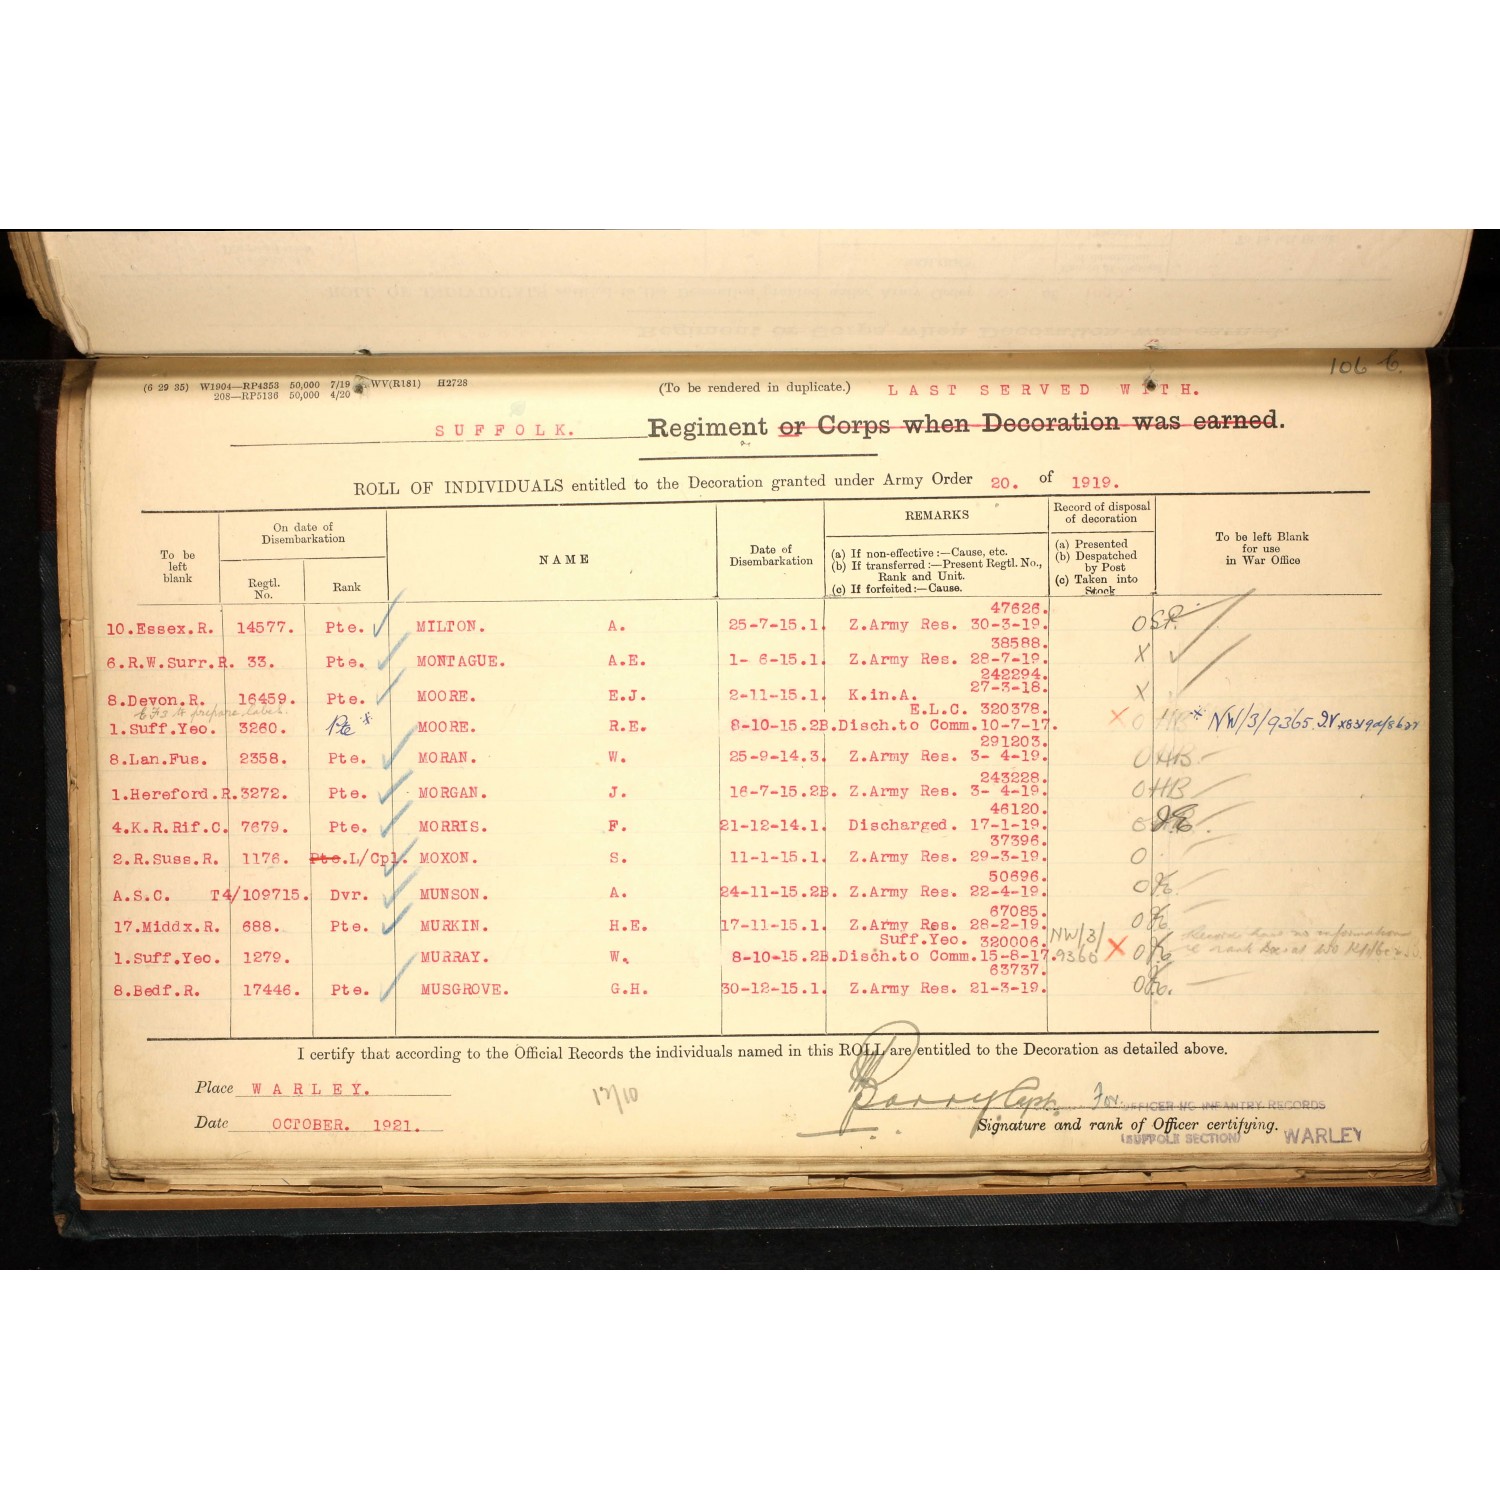 106 C.
(6 29 35) W1904—RP4353 50,000 7/19 WV(R181) H2728
208—RP5136 50,000 4/20
(To be rendered in duplicate.) LAST SERVED WITH.
SUFFOLK. Regiment or Corps when Decoration was earned.
ROLL OF INDIVIDUALS entitled to the Decoration granted under Army Order 20. of 1919.
To be left blank
On date of Disembarkation
Regtl. No.
Rank
NAME
Date of Disembarkation
REMARKS
(a) If non-effective :—Cause, etc.
(b) If transferred :—Present Regtl. No., Rank and Unit.
(c) If forfeited :—Cause.
Record of disposal of decoration
(a) Presented
(b) Despatched by Post
(c) Taken into Stock
To be left Blank for use in War Office
47626.
10.Essex.R. 14577. Pte. MILTON. A. 25-7-15.1. Z.Army Res. 30-3-19. O
38588.
6.R.W.Surr.R. 33. Pte. MONTAGUE. A.E. 1- 6-15.1. Z.Army Res. 28-7-19. X
242294.
8.Devon.R. 16459. Pte. MOORE. E.J. 2-11-15.1. K.in.A. 27-3-18. X
prepare label.
E.L.C. 320378.
1.Suff.Yeo. 3260. Pte * MOORE. R.E. 8-10-15.2B. Disch.to Comm.10-7-17. X O * NW/3/9365
291203.
8.Lan.Fus. 2358. Pte. MORAN. W. 25-9-14.3. Z.Army Res. 3- 4-19. O HB
243228.
1.Hereford.R. 3272. Pte. MORGAN. J. 16-7-15.2B. Z.Army Res. 3- 4-19. O HB
46120.
4.K.R.Rif.C. 7679. Pte. MORRIS. F. 21-12-14.1. Discharged. 17-1-19.
37396.
2.R.Suss.R. 1176. Pte.L/Cpl. MOXON. S. 11-1-15.1. Z.Army Res. 29-3-19. O
50696.
A.S.C. T4/109715. Dvr. MUNSON. A. 24-11-15.2B. Z.Army Res. 22-4-19. O
67085.
17.Middx.R. 688. Pte. MURKIN. H.E. 17-11-15.1. Z.Army Res. 28-2-19. O
Suff.Yeo. 320006. NW/3/
1.Suff.Yeo. 1279. MURRAY. W. 8-10-15.2B. Disch.to Comm.15-8-17. 9360 X O
Records have no information
63737.
8.Bedf.R. 17446. Pte. MUSGROVE. G.H. 30-12-15.1. Z.Army Res. 21-3-19. O
I certify that according to the Official Records the individuals named in this ROLL are entitled to the Decoration as detailed above.
Place WARLEY. 12/10
Barry Capt. For OFFICER I/C INFANTRY RECORDS
Date OCTOBER. 1921. Signature and rank of Officer certifying.
(SUFFOLK SECTION) WARLEY